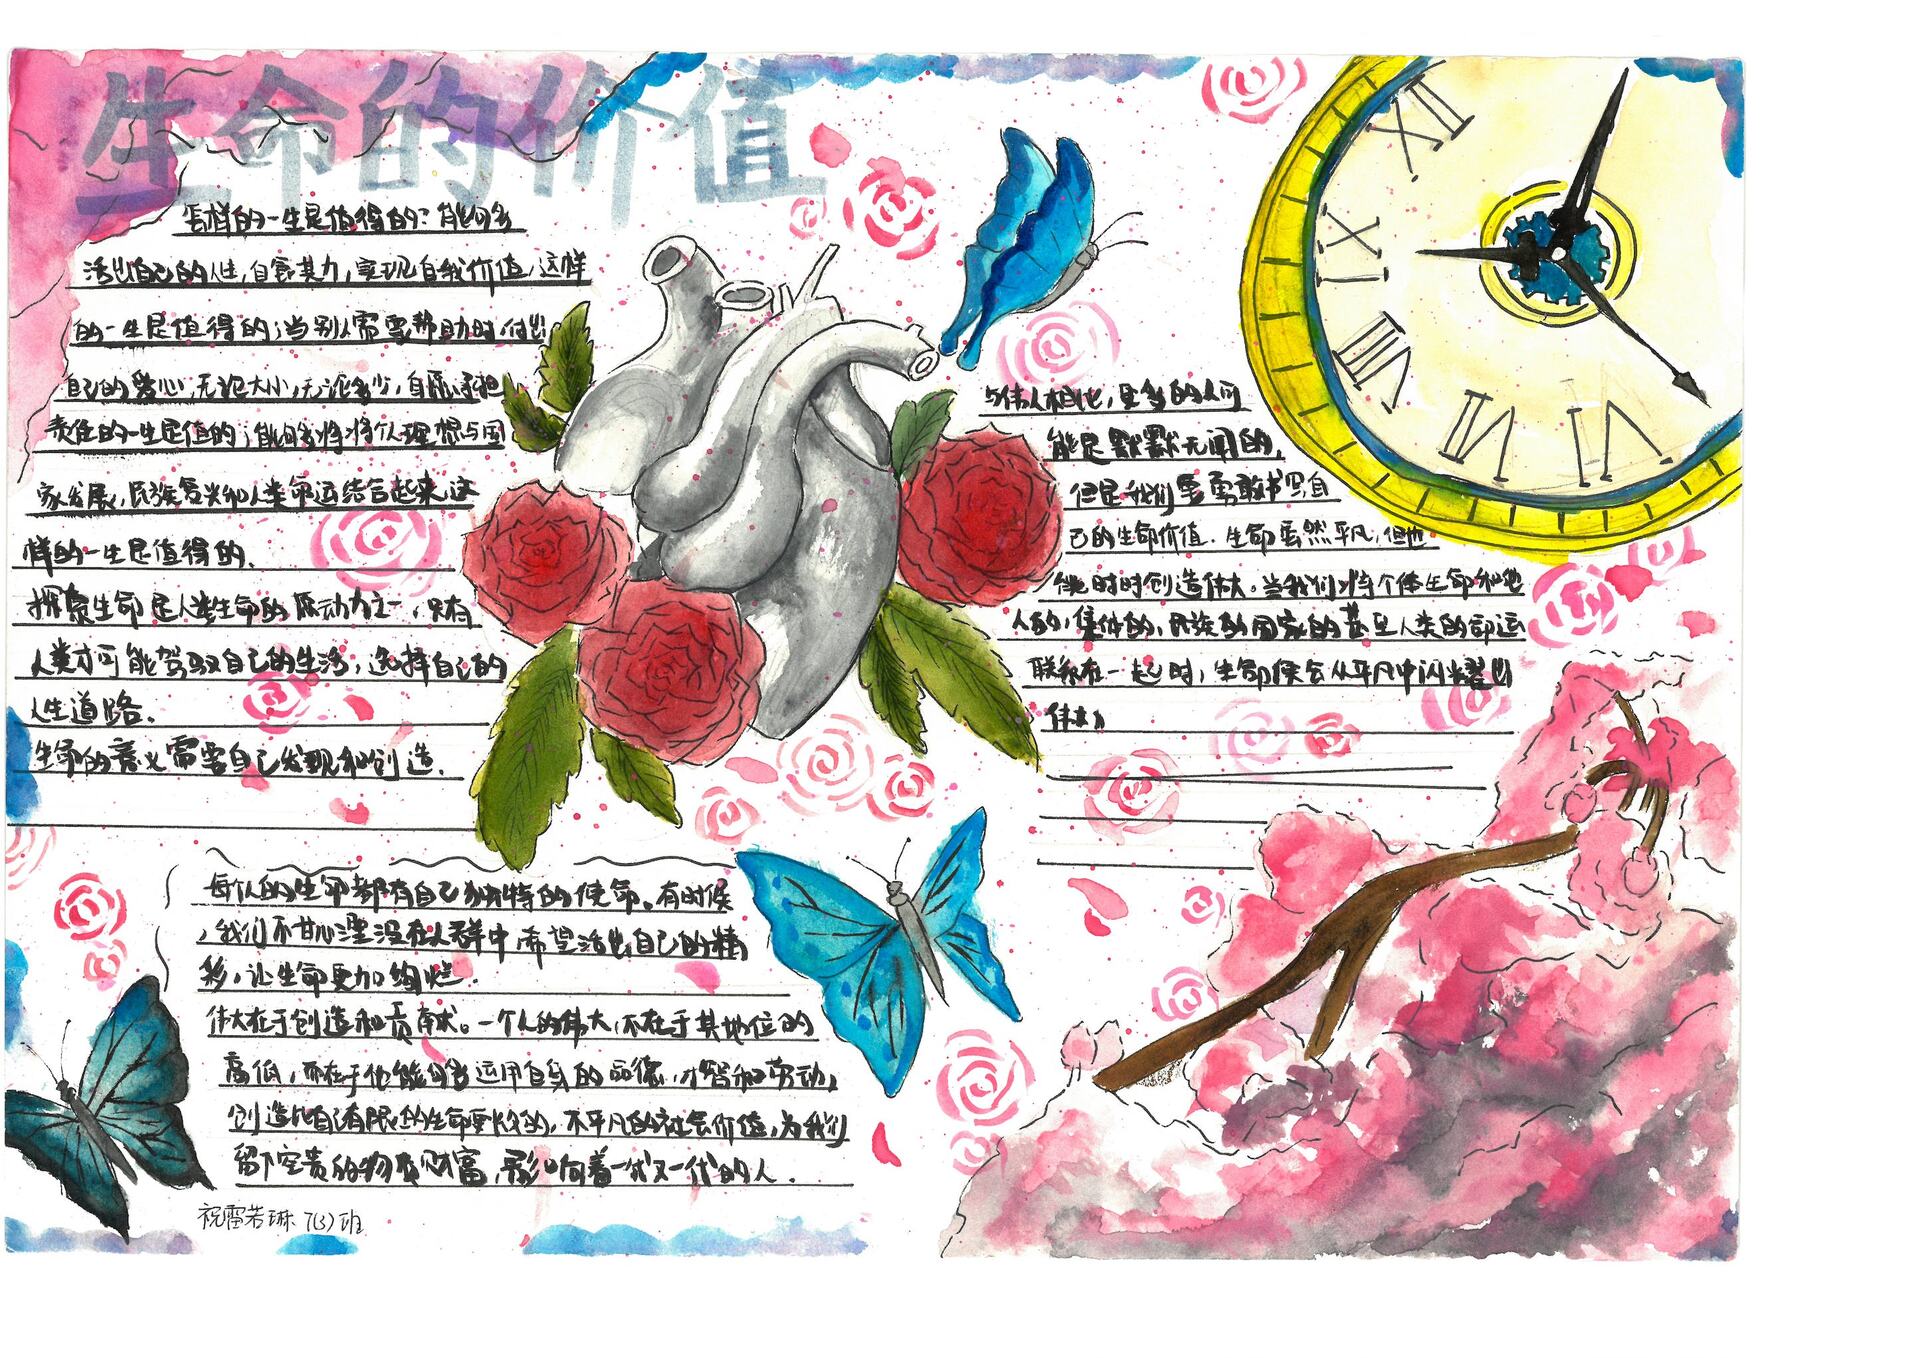 生命的价值
怎样的一生是值得的?能够
活出自己的人生,自食其力,实现自我价值,这样
的一生是值得的;当别人需要帮助时,付出
自己的爱心,无论大小,无论多少,自愿承担
责任的一生是值的;能够将个人理想与国
家发展,民族复兴和人类命运结合起来,这
样的一生是值得的.
探索生命是人类生命的原动力之一,只有
人类才可能驾驭自己的生活,选择自己的
人生道路.
生命的意义需要自己发现和创造.
与伟人相比,更多的人可
能是默默无闻的,
但是我们要勇敢书写自
己的生命价值.生命虽然平凡,但也
能时时创造伟大。当我们将个体生命和他
人的,集体的,民族的国家的甚至人类的命运
联系在一起时,生命便会从平凡中闪耀出
伟大。
每个人的生命都有自己独特的使命。有时候
,我们不甘心湮没在人群中,希望活出自己的精
彩,让生命更加绚烂.
伟大在于创造和贡献。一个人的伟大,不在于其地位的
高低,而在于他能够运用自身的品德,才智和劳动,
创造比自己有限的生命更长久的,不平凡的社会价值,为我们
留下宝贵的物质财富,影响着一代又一代的人.
祝雷若琳 7(3)班